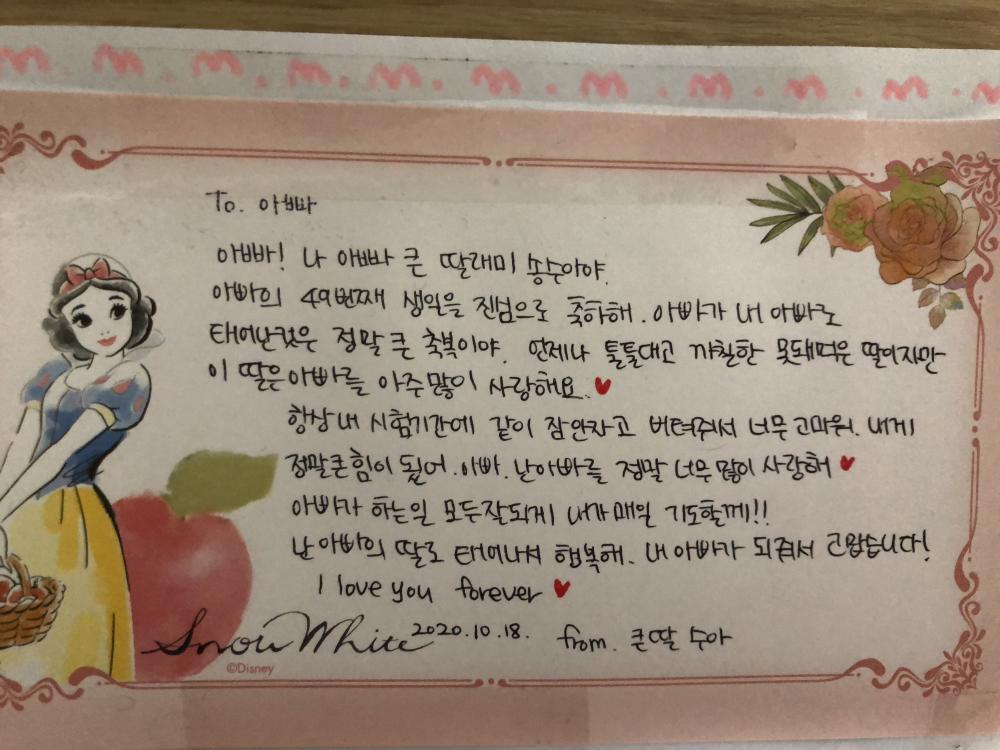 To. 아빠
아빠! 나 아빠 큰 딸래미 송수아야.
아빠의 49번째 생일을 진심으로 축하해. 아빠가 내 아빠로
태어난것은 정말 큰 축복이야. 언제나 툴툴대고 까칠한 못돼먹은 딸이지만
이 딸은 아빠를 아주 많이 사랑해요. ♥
항상 내 시험기간에 같이 잠 안자고 버텨줘서 너무 고마워. 내게
정말 큰 힘이 됬어. 아빠. 난 아빠를 정말 너무 많이 사랑해 ♥
아빠가 하는일 모두 잘되게 내가 매일 기도할께!!
난 아빠의 딸로 태어나서 행복해. 내 아빠가 되줘서 고맙습니다!
I love you forever ♥
Snow White 2020.10.18. from. 큰딸 수아
©Disney